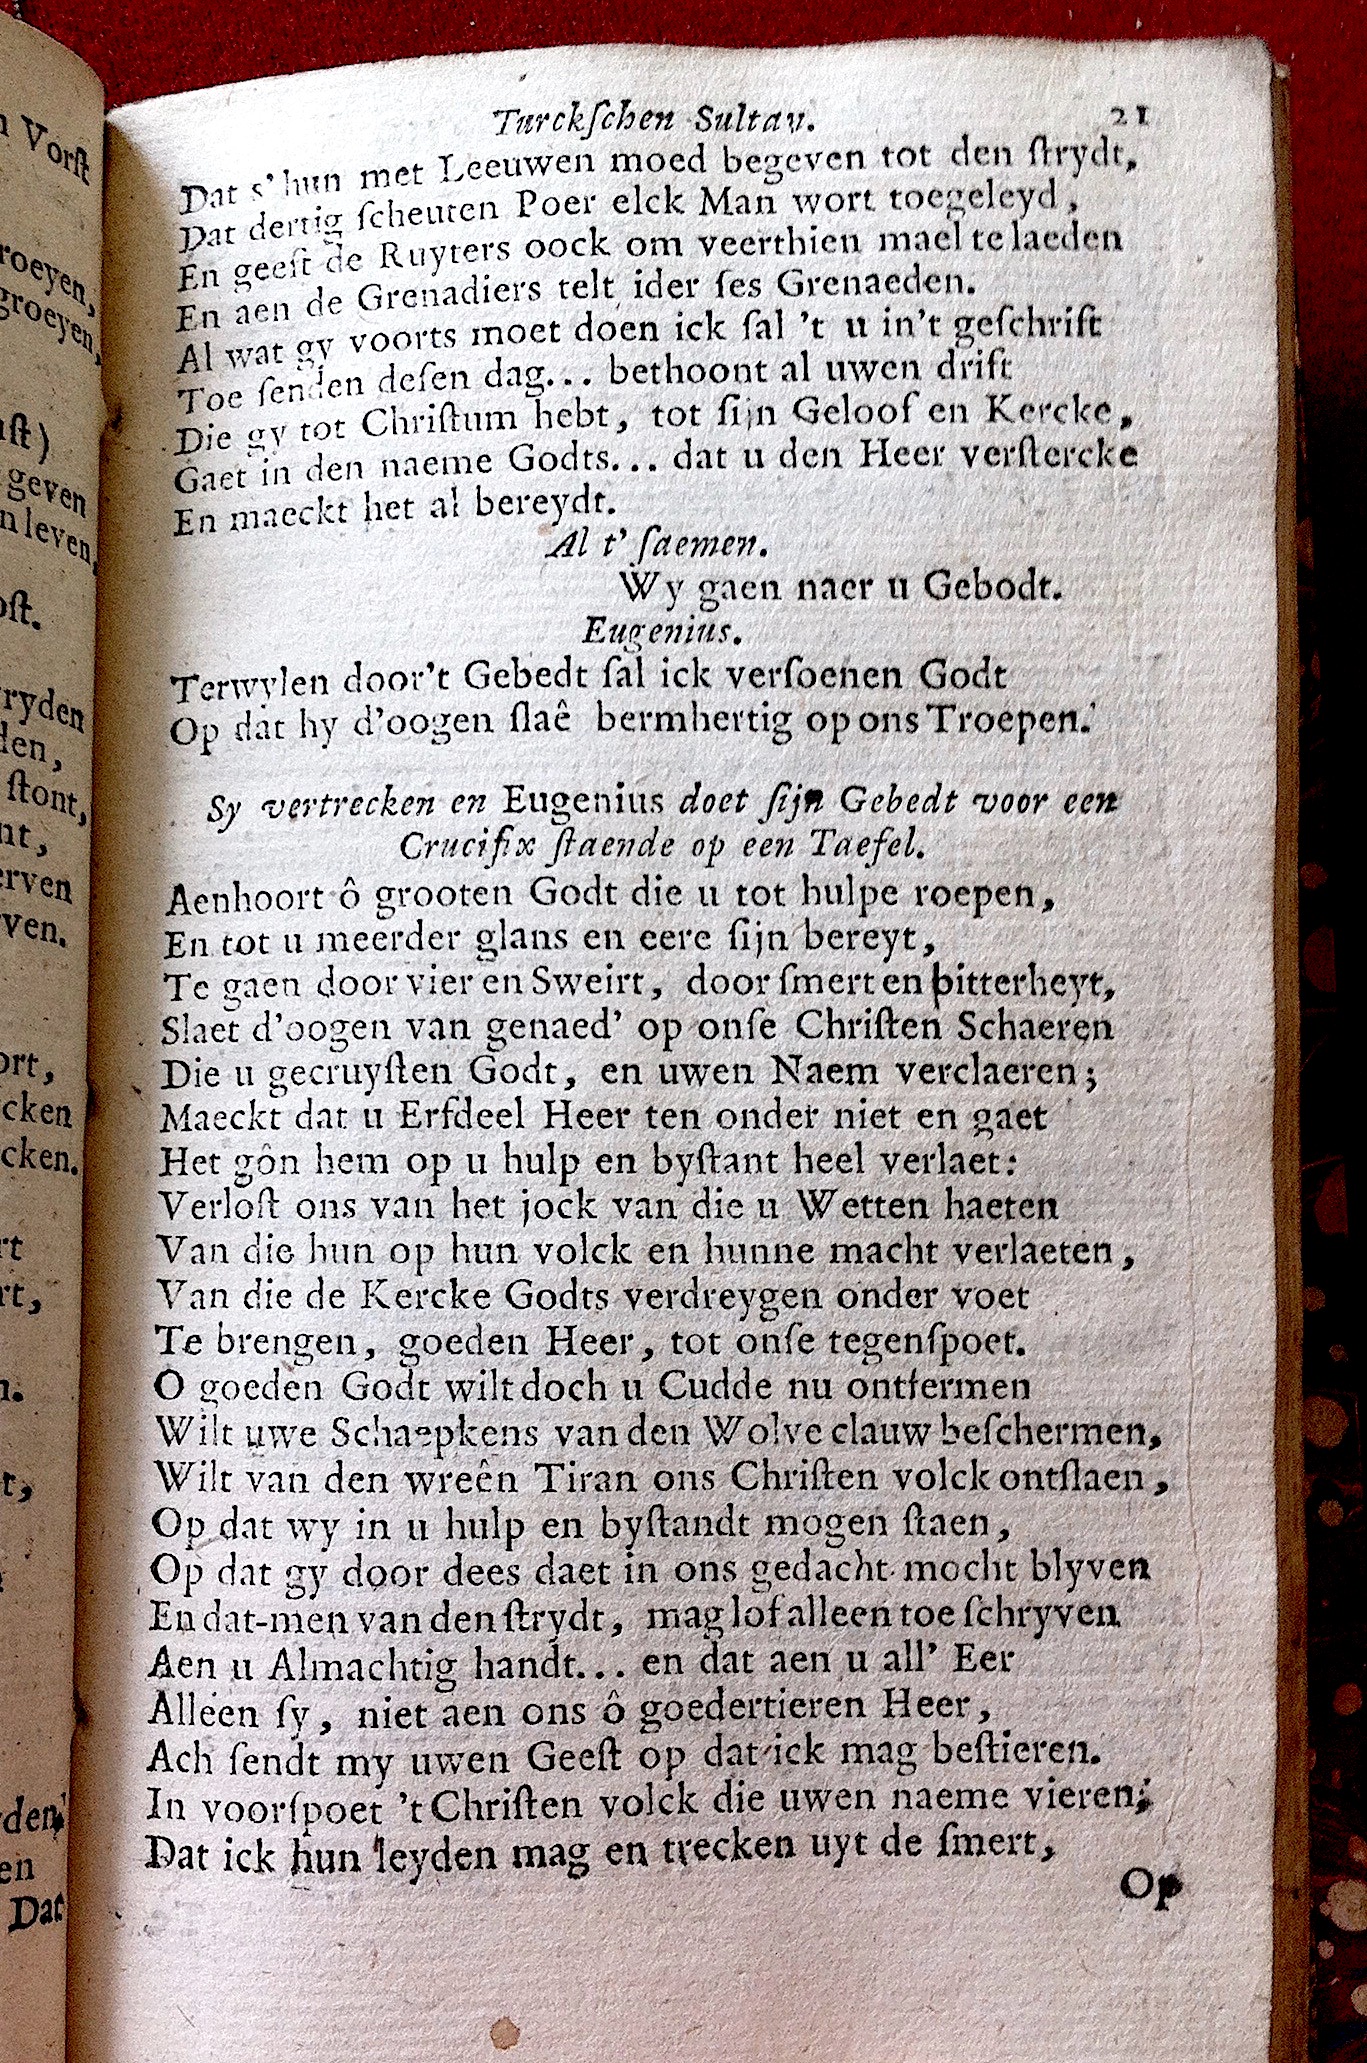 Turckſchen Sultan. 21
Dat s'hun met Leeuwen moed begeven tot den ſtrydt,
Dat dertig ſcheuten Poer elck Man wort toegeleyd,
En geeſt de Ruyters oock om veerthien mael te laeden
En aen de Grenadiers telt ider ſes Grenaeden.
Al wat gy voorts moet doen ick ſal 't u in't geſchrift
Toe ſenden deſen dag... bethoont al uwen drift
Die gy tot Chriſtum hebt, tot ſijn Geloof en Kercke,
Gaet in den naeme Godts... dat u den Heer verſtercke
En maeckt het al bereydt.
Al t' ſaemen.
Wy gaen naer u Gebodt.
Eugenius.
Terwylen door't Gebedt ſal ick verſoenen Godt
Op dat hy d'oogen ſlaê bermhertig op ons Troepen.
Sy vertrecken en Eugenius doet ſijn Gebedt voor een
Crucifix ſtaende op een Taefel.
Aenhoort ô grooten Godt die u tot hulpe roepen,
En tot u meerder glans en eere ſijn bereyt,
Te gaen door vier en Sweirt, door ſmert en bitterheyt,
Slaet d'oogen van genaed' op onſe Chriſten Schaeren
Die u gecruyſten Godt, en uwen Naem verclaeren;
Maeckt dat u Erfdeel Heer ten onder niet en gaet
Het gôn hem op u hulp en byſtant heel verlaet:
Verloſt ons van het jock van die u Wetten haeten
Van die hun op hun volck en hunne macht verlaeten,
Van die de Kercke Godts verdreygen onder voet
Te brengen, goeden Heer, tot onſe tegenſpoet.
O goeden Godt wilt doch u Cudde nu ontfermen
Wilt uwe Schaepkens van den Wolve clauw beſchermen,
Wilt van den wreên Tiran ons Chriſten volck ontſlaen,
Op dat wy in u hulp en byſtandt mogen ſtaen,
Op dat gy door dees daet in ons gedacht mocht blyven
En dat-men van den ſtrydt, mag lof alleen toe ſchryven
Aen u Almachtig handt... en dat aen u all' Eer
Alleen ſy, niet aen ons ô goedertieren Heer,
Ach ſendt my uwen Geeſt op dat ick mag beſtieren.
In voorſpoet 't Chriſten volck die uwen naeme vieren;
Dat ick hun leyden mag en trecken uyt de ſmert,
Op